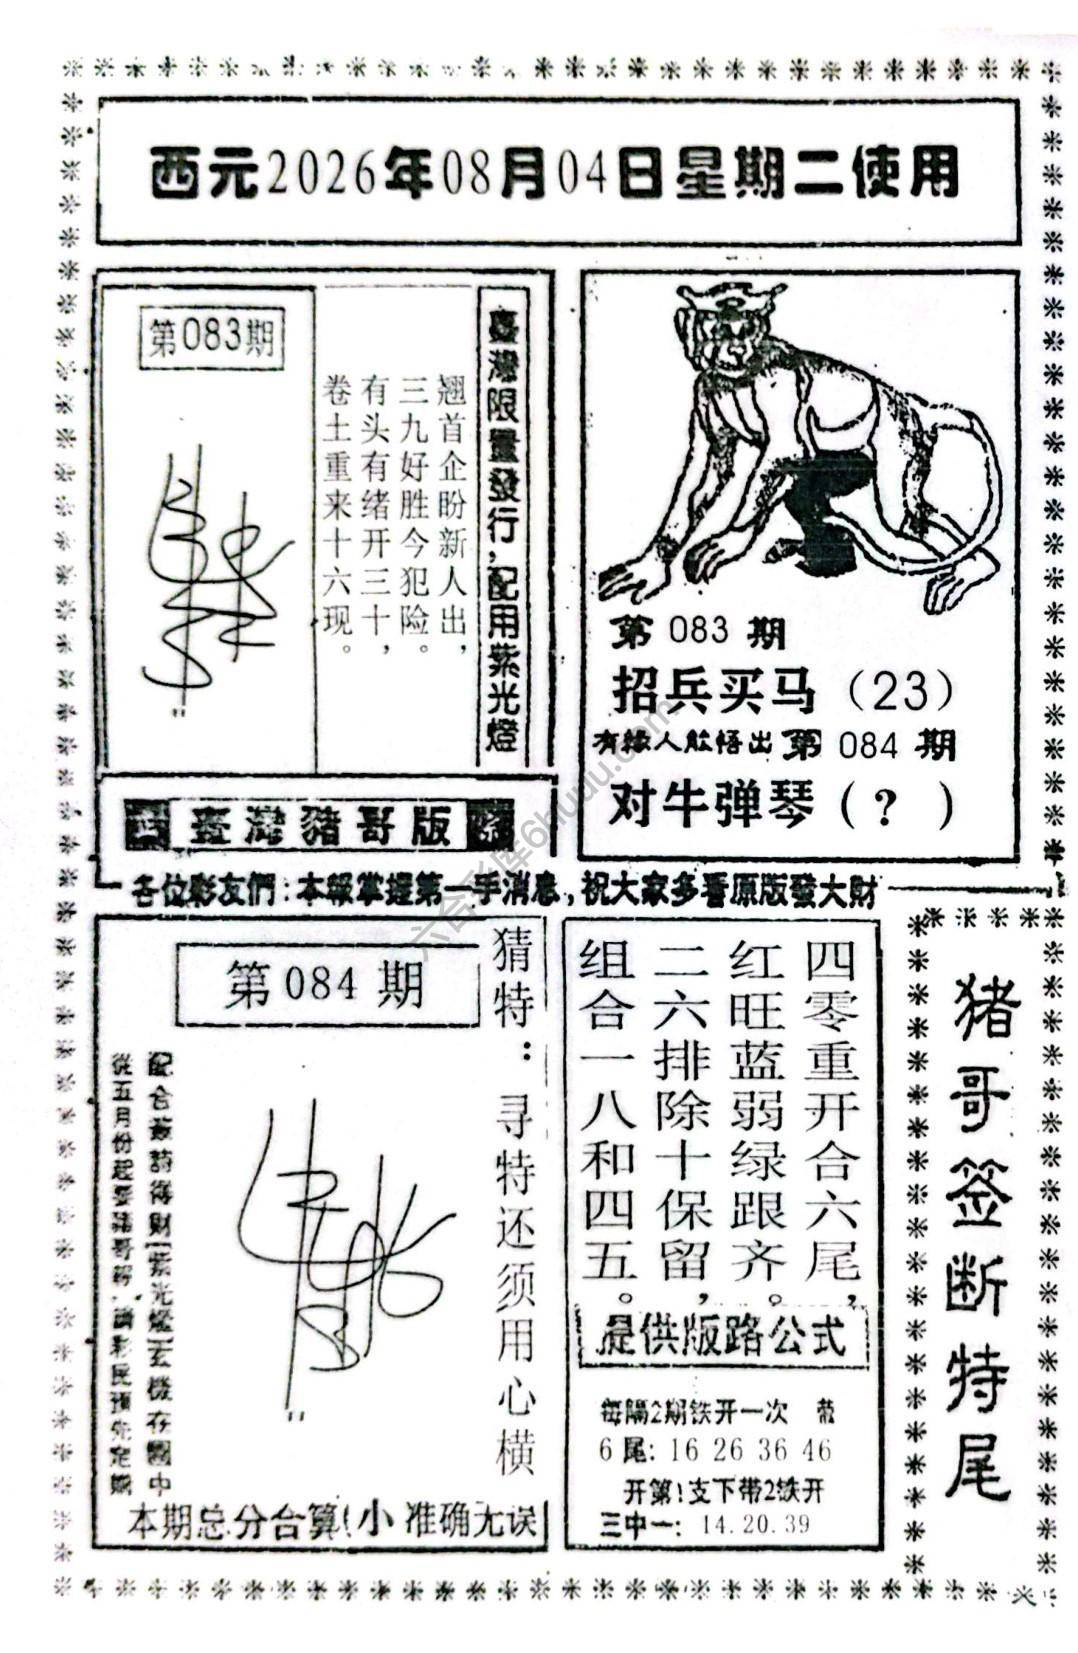 西元2026年08月04日星期二使用
第083期
翘首企盼新人出，
三九好胜今犯险。
有头有绪开三十，
卷土重来十六现。
臺灣限量發行，配用紫光燈
第 083 期
招兵买马（23）
有緣人能悟出 第 084 期
对牛弹琴（？）
臺灣豬哥版
各位彩友們：本報掌握第一手消息，祝大家多看原版發大財
第 084 期
猜特：寻特还须用心横
配合 得財（紫光燈）玄機在圖中
從五月份起要 ，請彩民預先定購
本期总分合算（小 准确无误
四零重开合六尾，
红旺蓝弱绿跟齐。
二六排除十保留，
组合一八和四五。
提供版路公式
每隔2期铁开一次 带
6 尾: 16 26 36 46
开第1支下带2铁开
三中一: 14.20.39
猪哥签断特尾
六合 库6huuu.com